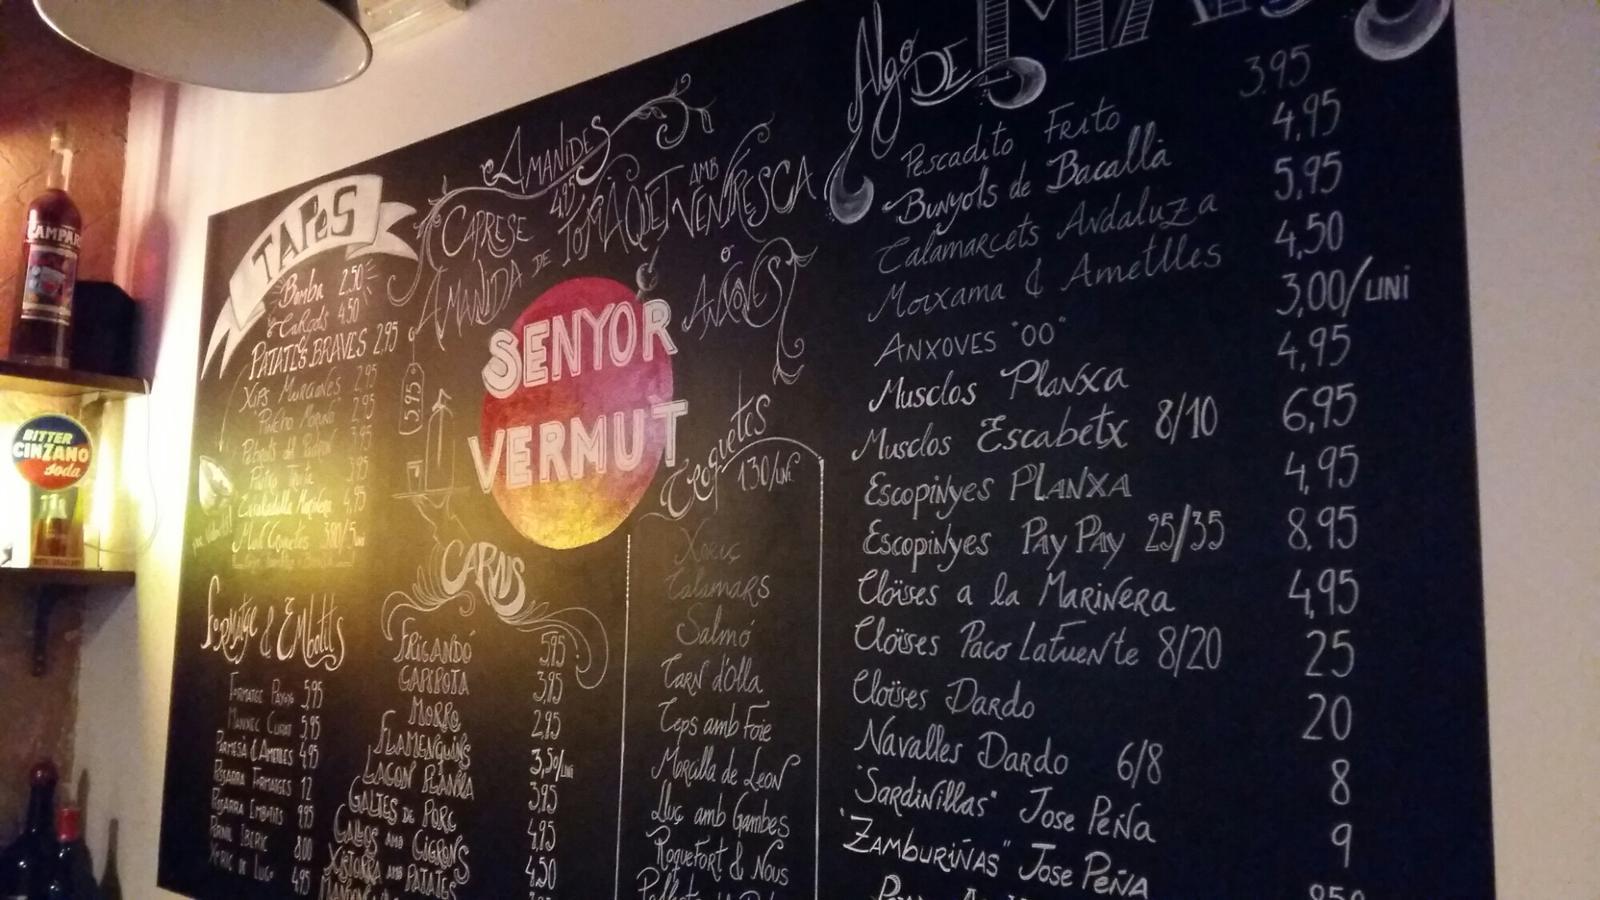 CAMPARI
BITTER
CINZANO
soda
TAPES
Bomba 2,50
Cargols 4,50
PATATES BRAVES 2,95
2,95
2,95
3,95
3,95
4,95
Formatge & Embotits
5,95
MANXEC CURAT 5,95
PARMESÀ & AMETLLES 4,95
PISSARRA FORMATGES 12
PISSARRA EMBOTITS 9,95
PERNIL IBÈRIC
4,95
AMANIDES
CAPRESE 4,95
AMANIDA DE TOMÀQUET AMB VENTRESCA
O ANXOVES
5,95
SENYOR
VERMUT
CARNS
FRICANDÓ 5,95
CAPIPOTA 3,95
MORRO 2,95
FLAMENQUINS 3,50/UNI
LACON PLANXA 3,95
GALTES DE PORC 4,95
CALLOS AMB CIGRONS 4,50
XISTORRA AMB PATATES
Croquetes
1'30/UNI
Xoriç
Calamars
Salmó
Carn d'Olla
Ceps amb Foie
Morcilla de Leon
Lluç amb Gambes
Roquefort & Nous
Algo DE MAR
Pescadito Frito 3.95
Bunyols de Bacallà 4,95
Calamarcets Andaluza 5,95
Moixama & Ametlles 4,50
ANXOVES "OO" 3,00/UNI
Musclos Planxa 4,95
Musclos Escabetx 8/10 6,95
Escopinyes PLANXA 4,95
Escopinyes Pay Pay 25/35 8.95
Cloïsses a la Marinera 4,95
Cloïsses Paco Lafuente 8/20 25
Cloïsses Dardo 20
Navalles Dardo 6/8 8
"Sardinillas" Jose Peña 9
"ZAMBURIÑAS" Jose Peña